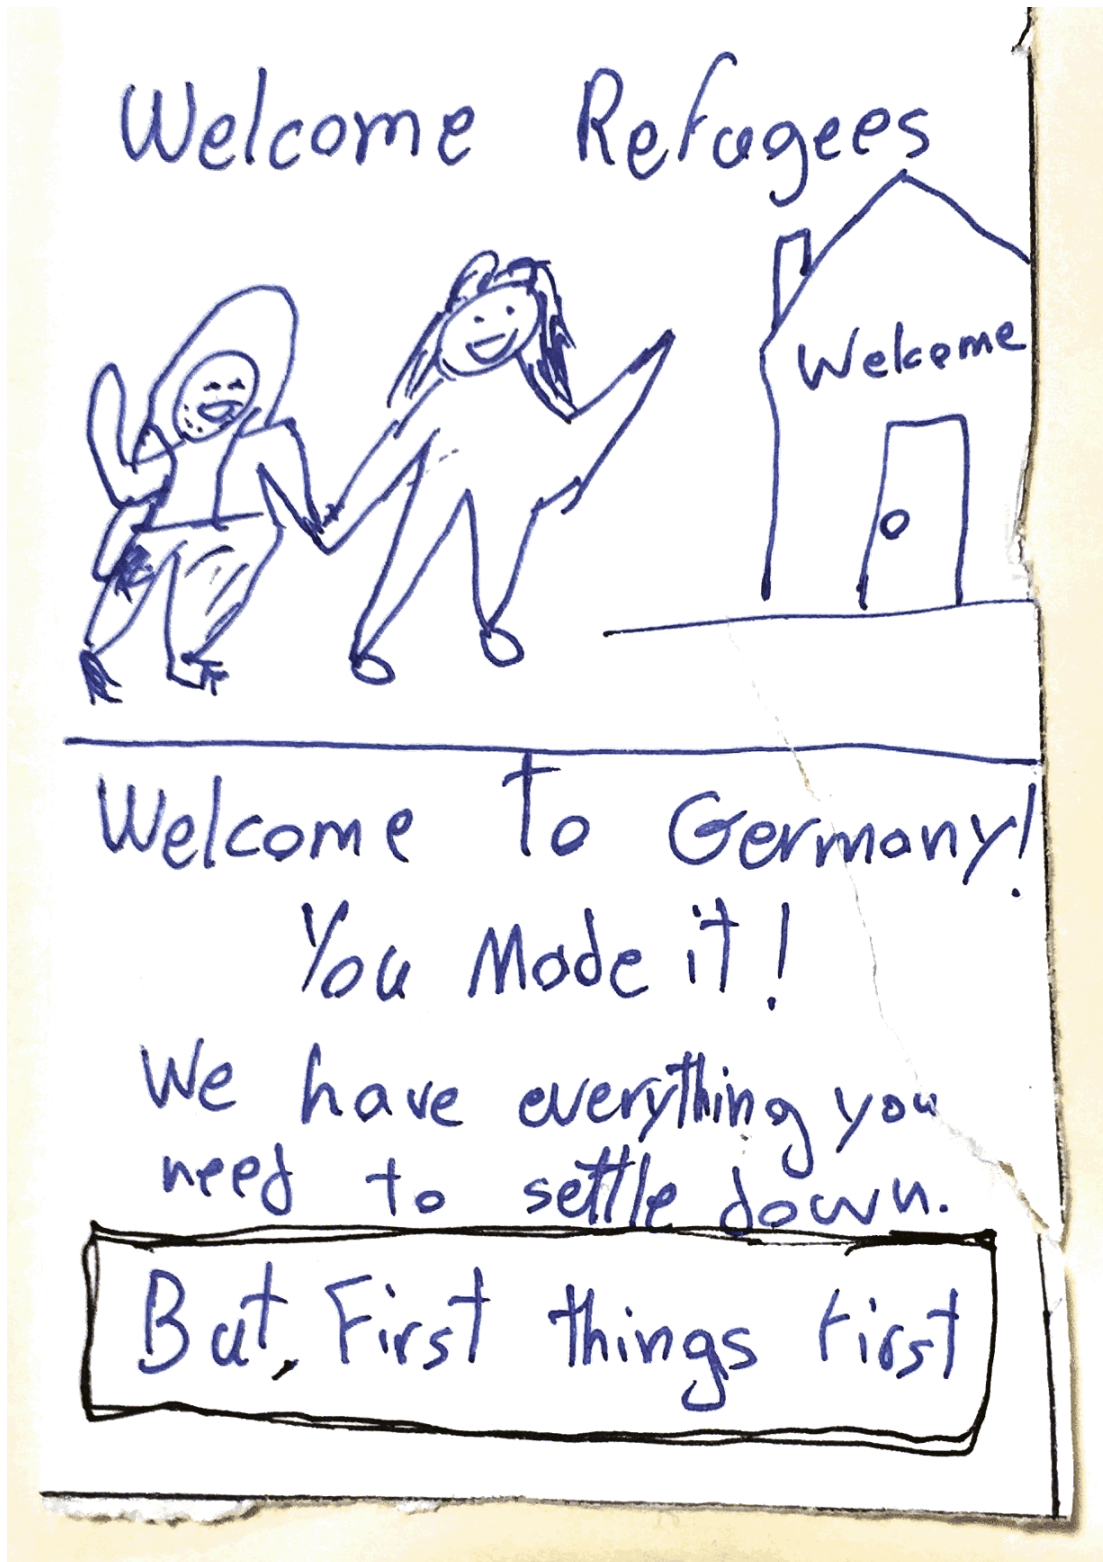 Welcome Refugees
Welcome
Welcome To Germany!
You Made it!
We have everything you
need to settle down.
But, First things First